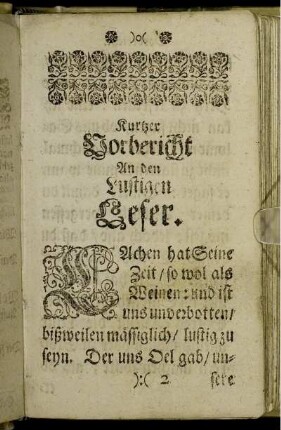 )o(
Kurtzer
Vorbericht
An den
Lustigen
Leser.
LAchen hat Seine
Zeit / so wol als
Weinen: und ist
uns unverbotten /
bißweilen mässiglich / lustig zu
seyn. Der uns Oel gab / un-
):( 2 sere